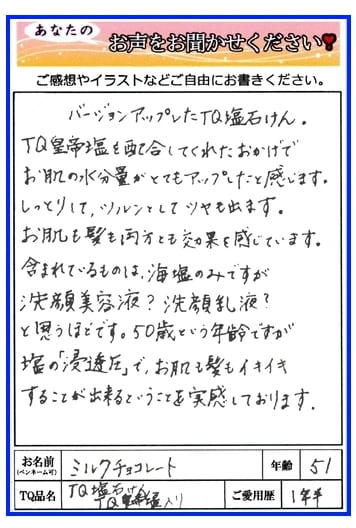 あなたの
お声をお聞かせください
ご感想やイラストなどご自由にお書きください。
バージョンアップしたTQ塩石けん。
TQ皇帝塩を配合してくれたおかげで
お肌の水分量がとてもアップしたと感じます。
しっとりして、ツルンとしてツヤも出ます。
お肌も髪も両方とも効果を感じています。
含まれているものは、海塩のみですが
洗顔美容液?洗顔乳液?
と思うほどです。50歳という年齢ですが
塩の「浸透圧」で、お肌も髪もイキイキ
することが出来るということを実感しております。
お名前
(ペンネーム可)
ミルクチョコレート
年齢
51
TQ品名
TQ塩石けん
TQ皇帝塩入り
ご愛用歴
1年半